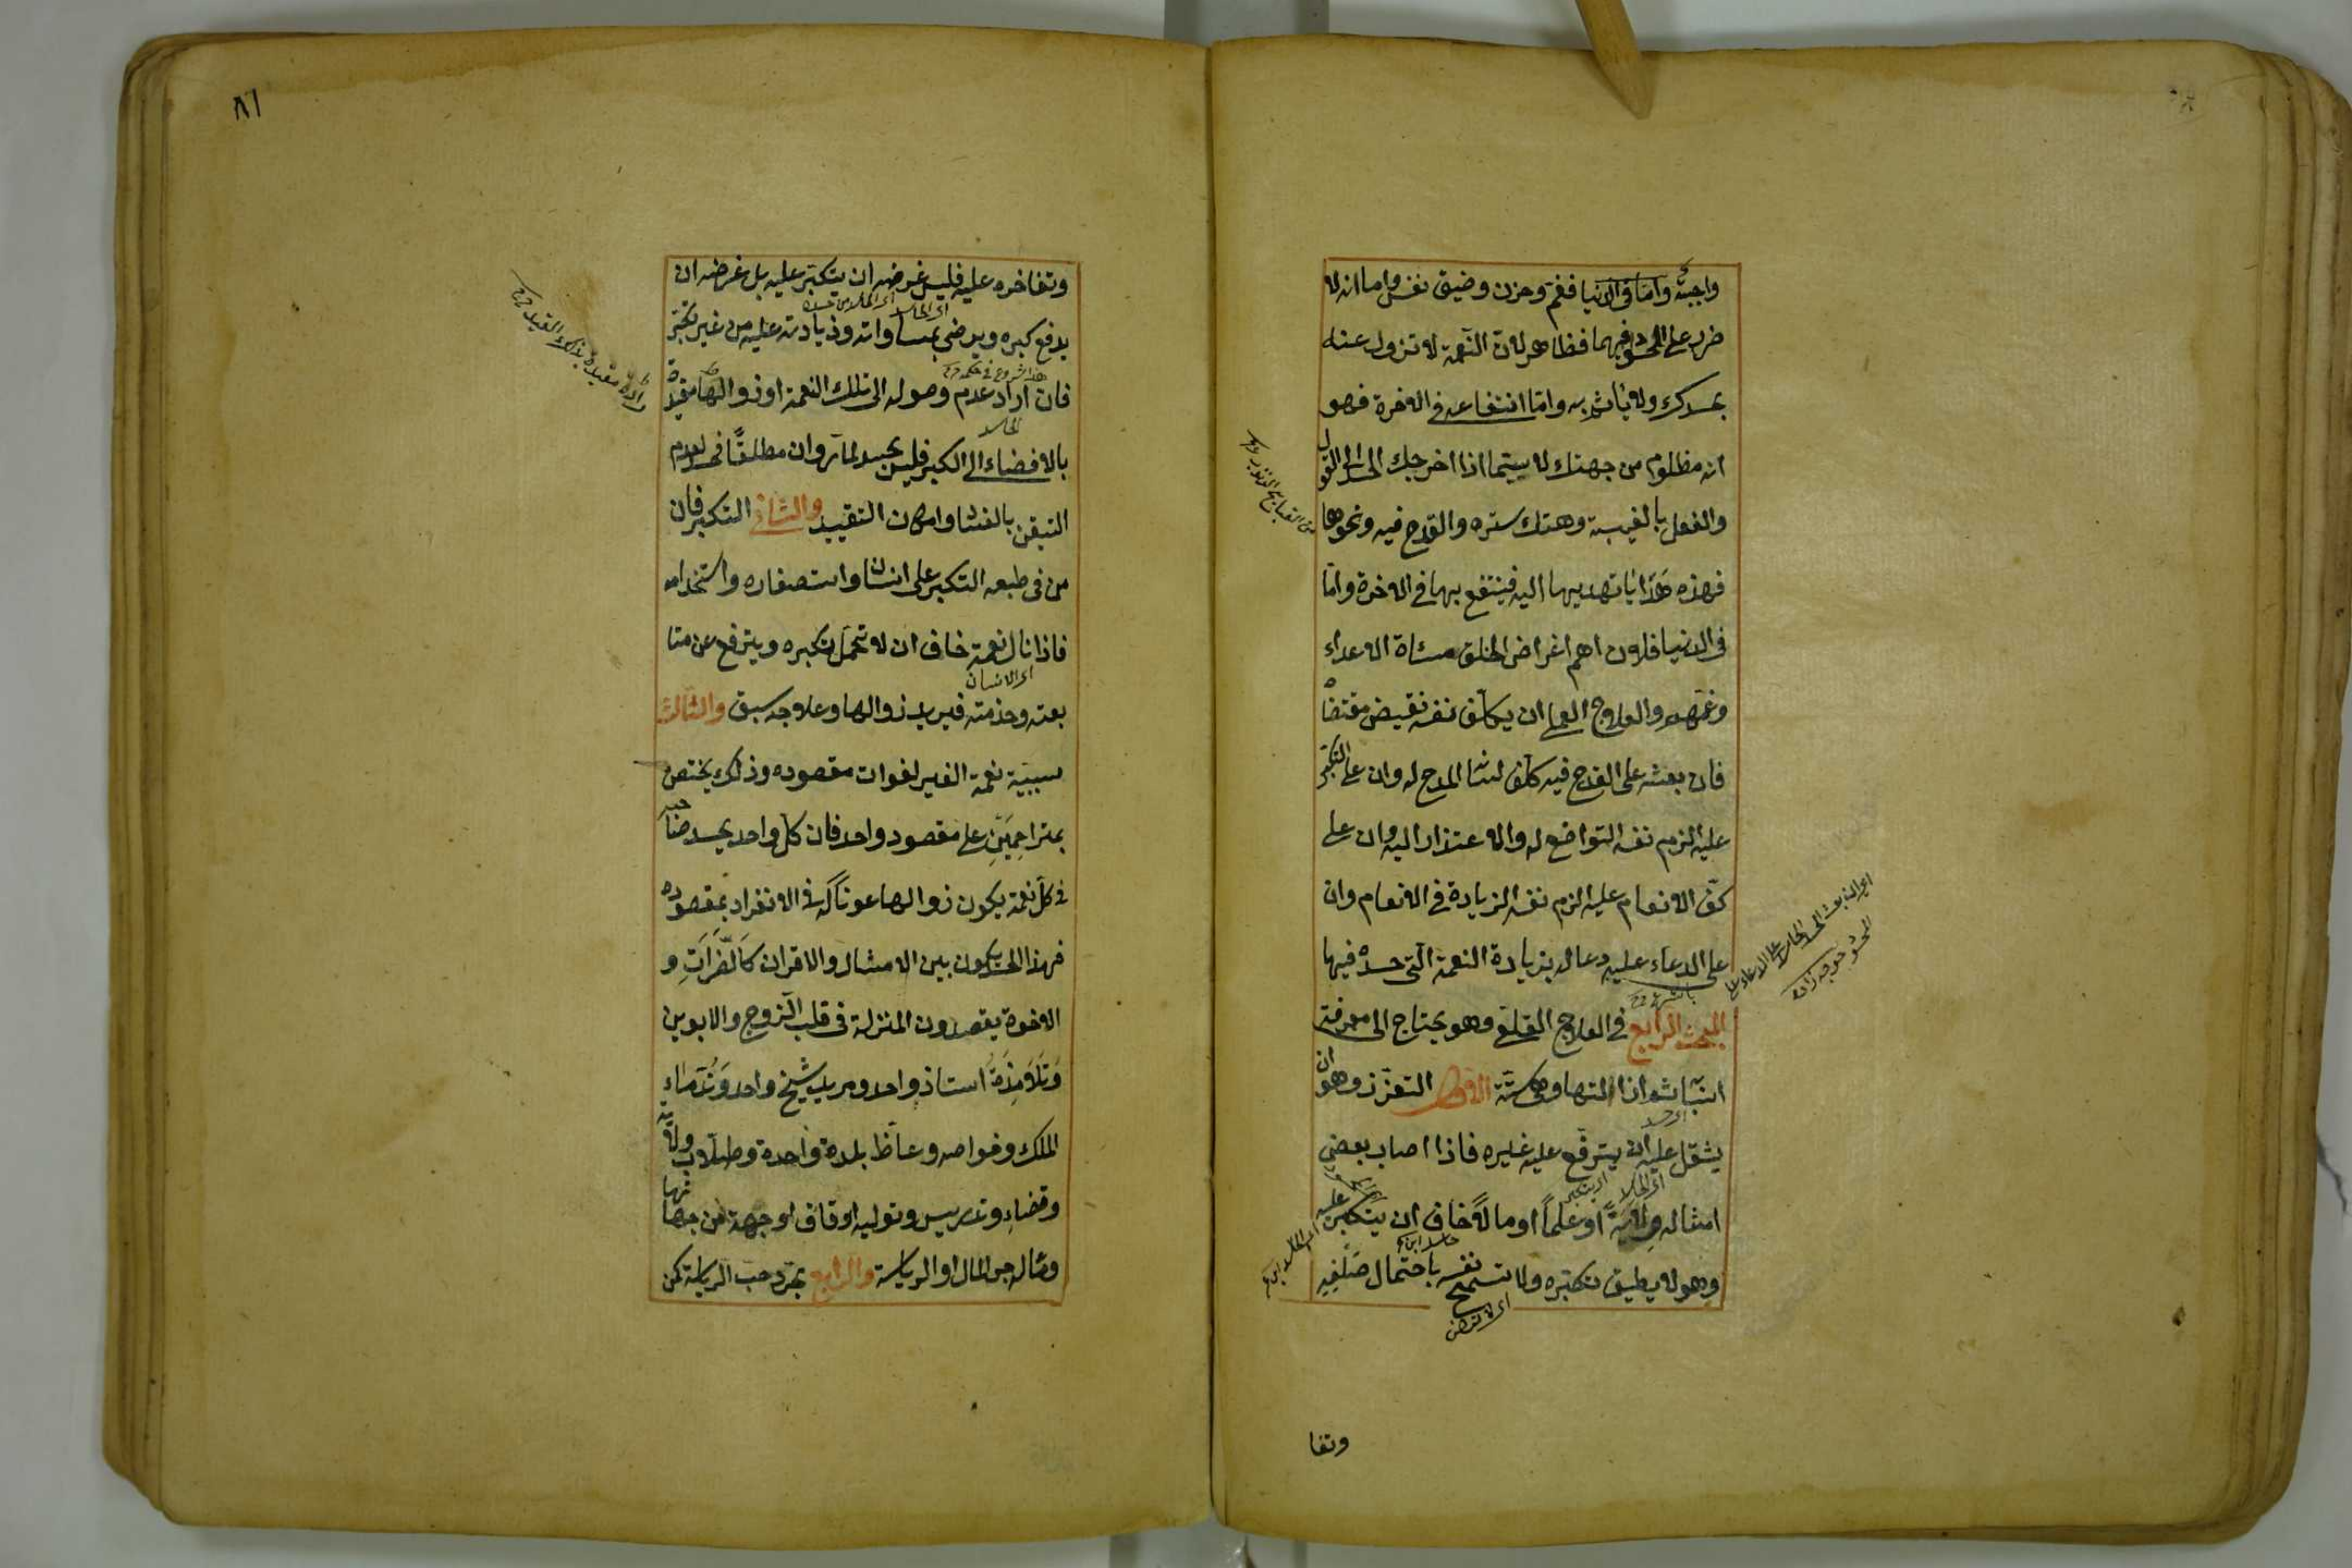 واجبة واما في الدنيا فغم وحزن وضيق نفس واما انه لا
ضرر على المحسود فيهما فظاهر لان النعمة لا تزول عنه
بحسدك ولا ياثم به واما انتفاعه في الاخرة فهو
انه مظلوم من جهتك لا سيما اذا اخرجك الحسد الى القول
والفعل بالغيبة وهتك ستره والقدح فيه ونحوها
فهذه هدايا تهديها اليه فينتفع بها في الاخرة واما
في الدنيا فلان اهم اغراض الخلق مساة الاعداء
وغمهم والعلاج العملي ان يكلف نفسه نقيض مقتضاه
فان بعثه على القدح فيه كلف لسانه المدح له وان على التكبر
عليه الزم نفسه التواضع له والاعتذار اليه وان على
كف الانعام عليه الزم نفسه الزيادة في الانعام وان
على الدعاء عليه دعا له بزيادة النعمة التي حسده فيها
المبحث الرابع في العلاج القلعي وهو يحتاج الى معرفة
اسبابه ثم ازالتها وهي ستة الاول التعزز وهو ان
يثقل عليه ان يترفع عليه غيره فاذا اصاب بعض
امثاله ولاية او علما او مالا خاف ان يتكبر عليه
وهو لا يطيق تكبره ولا تسمح نفسه باحتمال صلفه
اي لا ترضى
وتفا
٨٦
وتفاخره عليه فليس غرضه ان يتكبر عليه بل غرضه ان
يدفع كبره ويرضى بمساواته وزيادته عليه من غير تكبر
فان اراد عدم وصوله الى تلك النعمة او زوالها مقيدة
بالافضاء الى الكبر فليس بحسد لما مر وان مطلقا فحسد لعدم
التيقن بالفساد وامكان التقييد والثاني التكبر فان
من في طبعه التكبر على انسان واستصغاره واستخدامه
فاذا نال نعمة خاف ان لا تحمل تكبره ويترفع عن متا
اي الانسان
بعته وخدمته فيريد زوالها وعلاجه سبق والثالث
سببية نعمة الغير لفوات مقصوده وذلك يختص
بمتزاحمين على مقصود واحد فان كل واحد يحسد صاحبه
في كل نعمة يكون زوالها عونا له في الانفراد بمقصوده
فهذا الحسد يكون بين الامثال والاقران كالضرات و
الاخوة يقصدون المنزلة في قلب الزوج والابوين
وتلامذة استاذ واحد ومريدي شيخ واحد وندماء
الملك وخواصه وعاظ بلدة واحدة وطلاب ولاية
وقضاء وتدريس وتولية اوقاف او جهة من جهاتها
ومآله حب المال او الرياسة والرابع مجرد حب الرياسة كمن